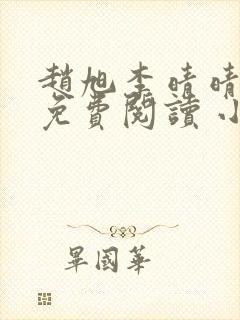 趙旭李晴晴
免費閱讀小
畢國華